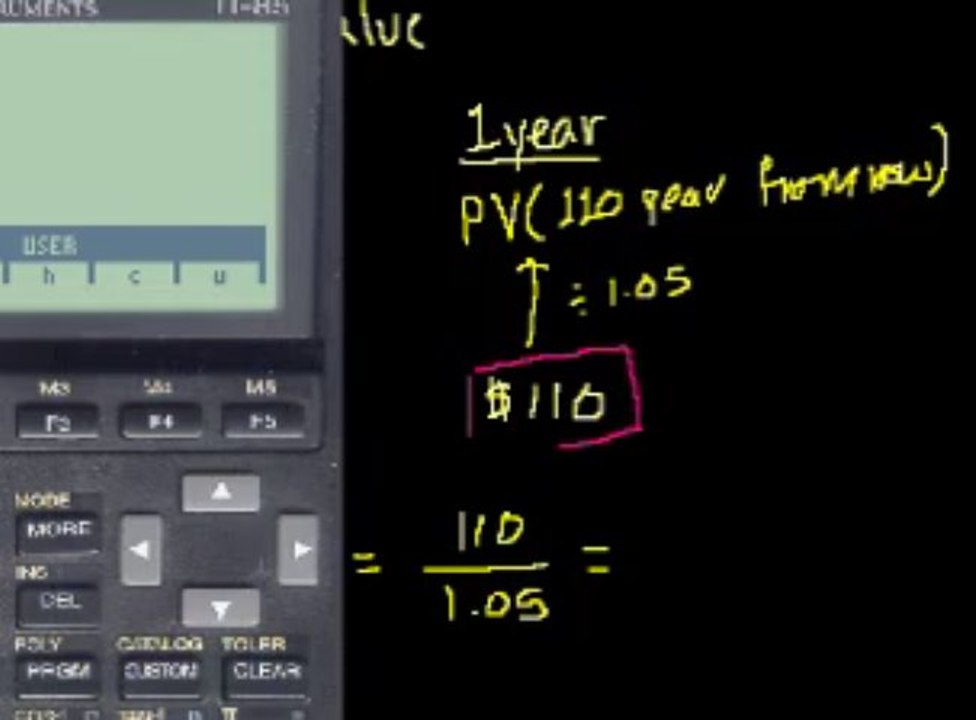 TI-85
1 year
PV(110 year from now)
÷ 1.05
$110
= 110 =
1.05
USER
h c u
M3 M4 M5
F3 F4 F5
MODE
MORE
INS
DEL
POLY CATALOG TOLER
PRGM CUSTOM CLEAR